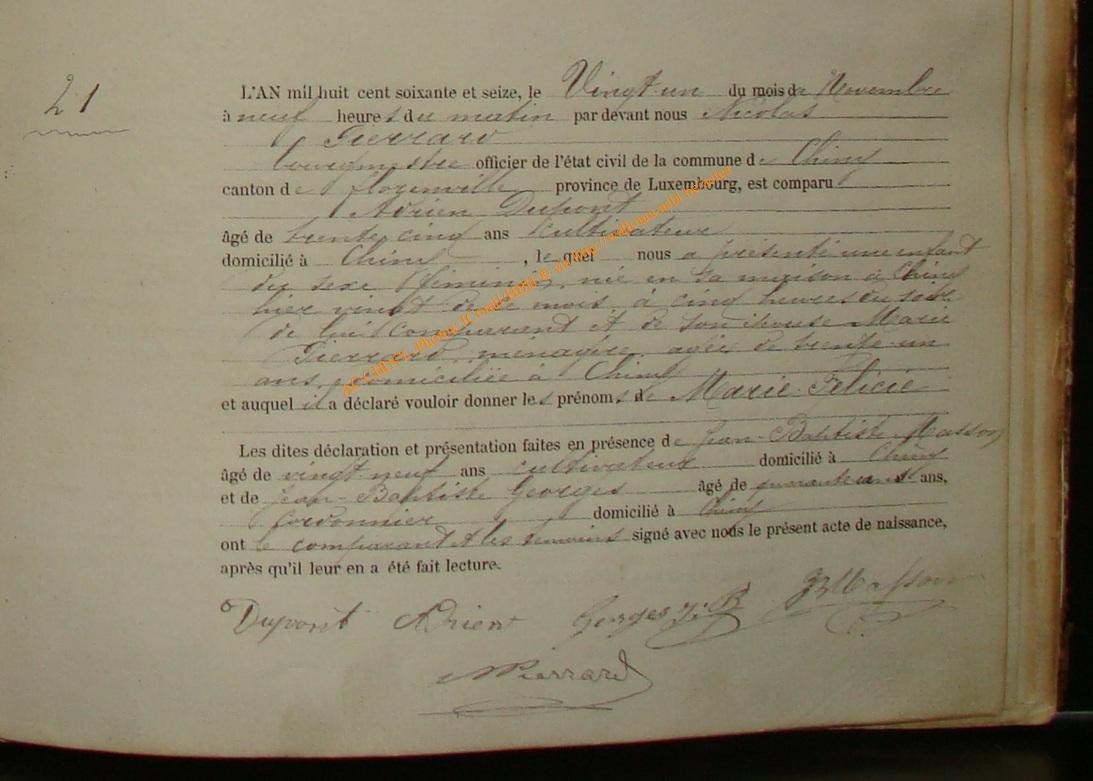 21
L'AN mil huit cent soixante et seize, le Vingt-un du mois de Novembre
à neuf heures du matin par devant nous Nicolas
Pierrard
bourgmestre officier de l'état civil de la commune de Chiny
canton de Florenville province de Luxembourg, est comparu
Adrien Dupont
âgé de trente cinq ans cultivateur
domicilié à Chiny , le quel nous a présenté une enfant
du sexe féminin, née en sa maison à Chiny
hier vingt de ce mois, à cinq heures du soir
de lui comparant et de son épouse Marie
Pierrard, ménagère, agée de trente-un
ans, domiciliée à Chiny
et auquel il a déclaré vouloir donner les prénoms de Marie-Félicie
Les dites déclaration et présentation faites en présence de Jean-Baptiste Masson
âgé de vingt neuf ans cultivateur domicilié à Chiny
et de Jean-Baptiste Georges âgé de ans,
cordonnier domicilié à Chiny
ont le comparant et les témoins signé avec nous le présent acte de naissance,
après qu'il leur en a été fait lecture.
Dupont Adrien Georges J. B JBMasson
NPierrard